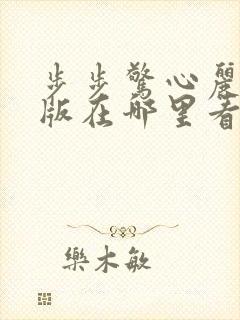 步步驚心麗
版在哪里看
樂木敏